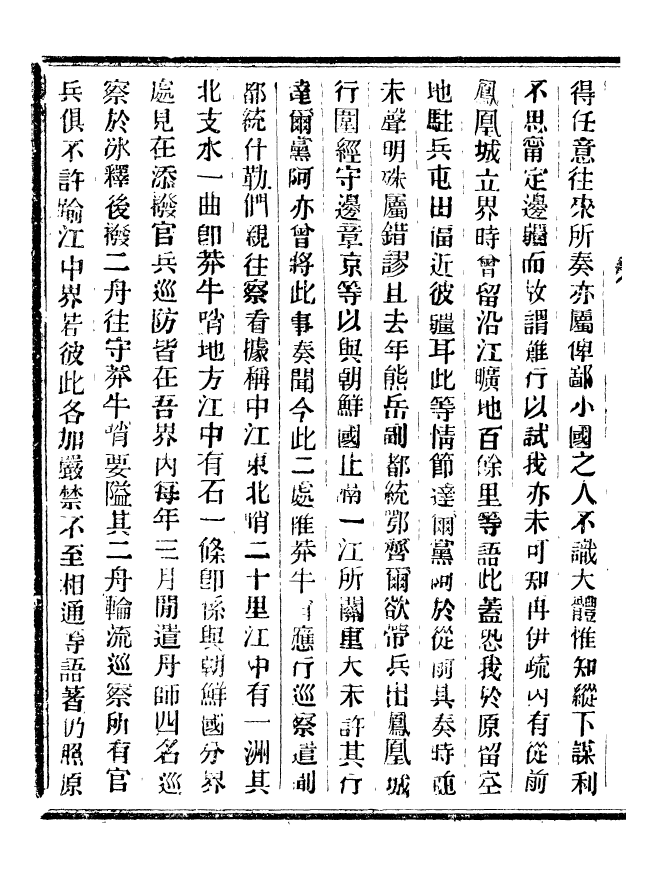 得任意往來所奏亦屬俾鄙小國之人不識大體惟知縱下謀利
不思甯定邊疆而故謂難行以試我亦未可知再伊疏內有從前
鳳凰城立界時曾留沿江曠地百餘里等語此蓋恐我於原留空
地駐兵屯田偪近彼疆耳此等情節達爾黨阿於從前具奏時
未聲明殊屬錯謬且去年熊岳副都統鄂齊爾欲帶兵出鳳凰城
行圍經守邊章京等以與朝鮮國止隔一江所關重大未許其行
達爾黨阿亦曾將此事奏聞今此二處惟莽牛哨應行巡察遣副
都統什勒們親往察看據稱中江東北哨二十里江中有一洲其
北支水一曲卽莽牛哨地方江中有石一條卽係與朝鮮國分界
處見在添撥官兵巡防皆在吾界內每年三月間遣舟師四名巡
察於冰釋後撥二舟往守莽牛哨要隘其二舟輪流巡察所有官
兵俱不許踰江中界若彼此各加嚴禁不至相通等語著仍照原